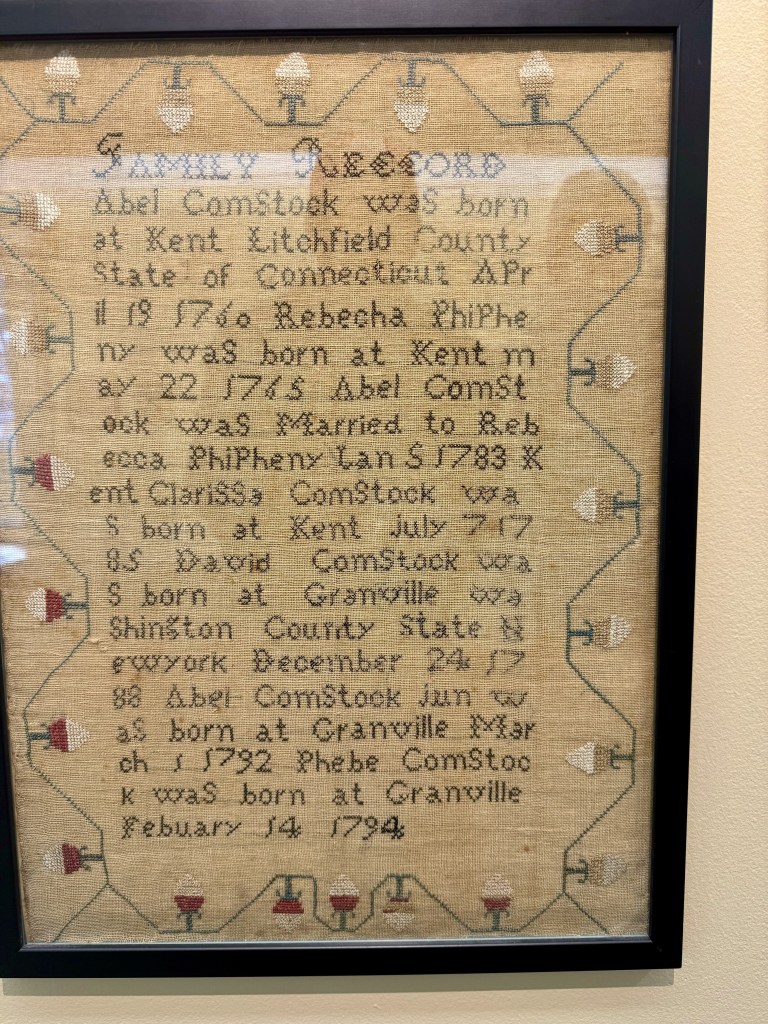 FAMILY RECCORD
Abel ComStock waS born
at Kent Litchfield County
State of Connecticut APr
il 19 1760 Rebecha PhiPhe
ny waS born at Kent m
ay 22 1765 Abel ComSt
ock waS Married to Reb
ecca PhiPheny Ian 5 1783 K
ent ClariSSa ComStock wa
S born at Kent July 7 17
85 David ComStock wa
S born at Granville wa
Shington County State N
ewyork December 24 17
88 Abel ComStock jun w
aS born at Granville Mar
ch 1 1792 Phebe ComStoc
k waS born at Granville
Febuary 14 1794